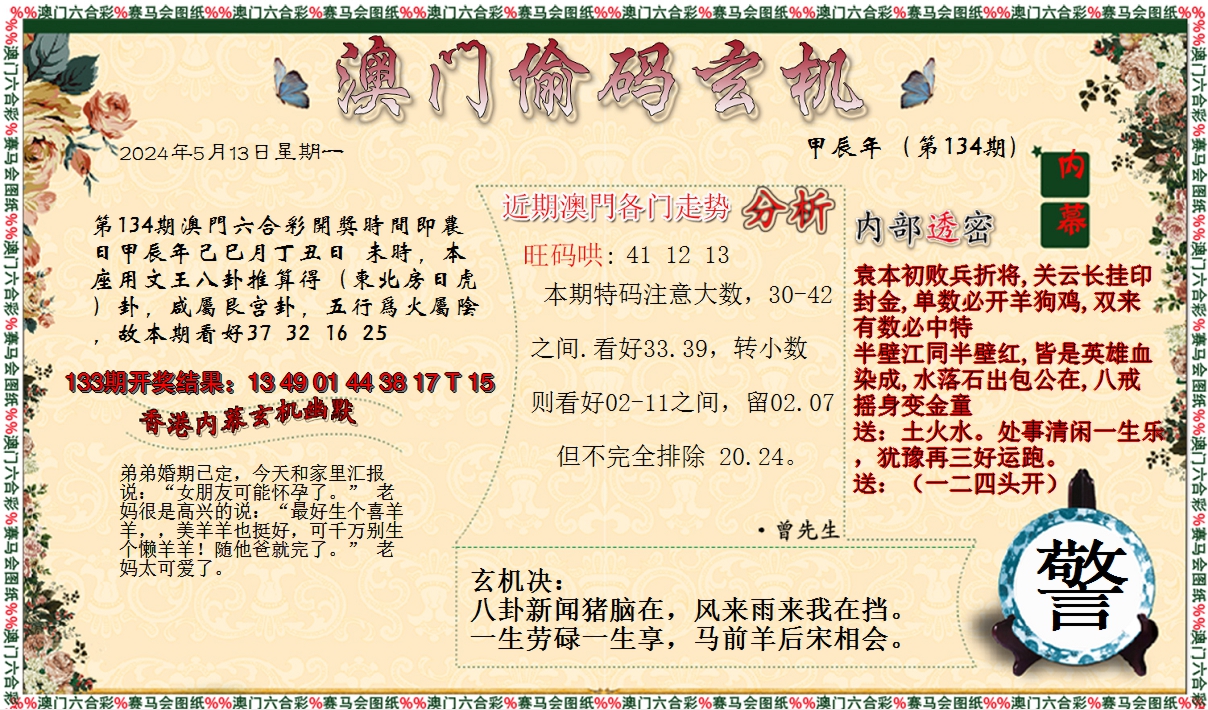 %%澳门六合彩%赛马会图纸%%澳门六合彩%赛马会图纸%%澳门六合彩%赛马会图纸%%澳门六合彩%赛马会图纸%%澳门六合彩%赛马会图纸%%澳门六合彩%赛马会图纸%%
澳门偷码玄机
2024年5月13日星期一
甲辰年（第134期）
第134期澳門六合彩開獎時間即農
日甲辰年己巳月丁丑日 未時，本
座用文王八卦推算得（東北房日虎
）卦，咸屬艮宫卦，五行爲火屬陰
，故本期看好37 32 16 25
133期开奖结果：13 49 01 44 38 17 T 15
香港内幕玄机幽默
弟弟婚期已定，今天和家里汇报
说：“女朋友可能怀孕了。” 老
妈很是高兴的说：“最好生个喜羊
羊，，美羊羊也挺好，可千万别生
个懒羊羊！随他爸就完了。” 老
妈太可爱了。
近期澳門各门走势 分析
旺码哄: 41 12 13
本期特码注意大数，30-42
之间.看好33.39，转小数
则看好02-11之间，留02.07
但不完全排除 20.24。
·曾先生
内幕
内部透密
袁本初败兵折将,关云长挂印
封金,单数必开羊狗鸡,双来
有数必中特
半壁江同半壁红,皆是英雄血
染成,水落石出包公在,八戒
摇身变金童
送：土火水。处事清闲一生乐
，犹豫再三好运跑。
送：（一二四头开）
玄机决：
八卦新闻猪脑在，风来雨来我在挡。
一生劳碌一生享，马前羊后宋相会。
警
%%澳门六合彩%赛马会图纸%%澳门六合彩%赛马会图纸%%澳门六合彩%赛马会图纸%%澳门六合彩%赛马会图纸%%澳门六合彩%赛马会图纸%%澳门六合彩%赛马会图纸%%